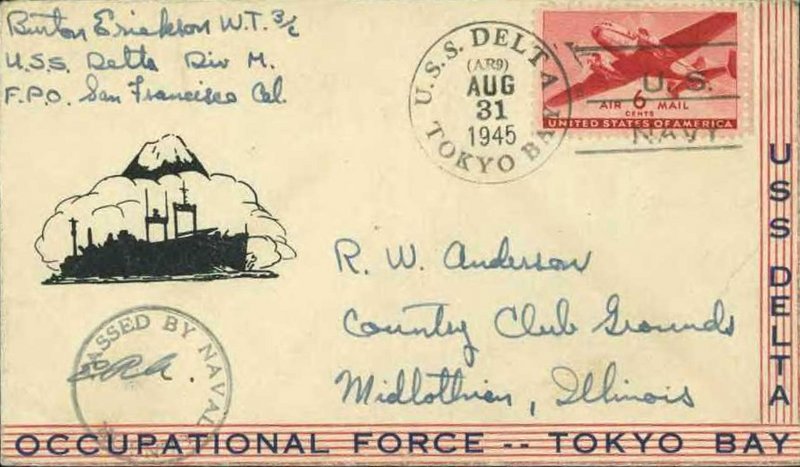 Burton Erickson W.T. 3/c
U.S.S. Delta Div M.
F.P.O. San Francisco Cal.
U.S.S. DELTA
(AR9)
AUG
31
1945
TOKYO BAY
AIR 6 MAIL
CENTS
UNITED STATES OF AMERICA
U.S.
NAVY
USS DELTA
R. W. Anderson
Country Club Grounds
Midlothian, Illinois
PASSED BY NAVAL
OCCUPATIONAL FORCE -- TOKYO BAY